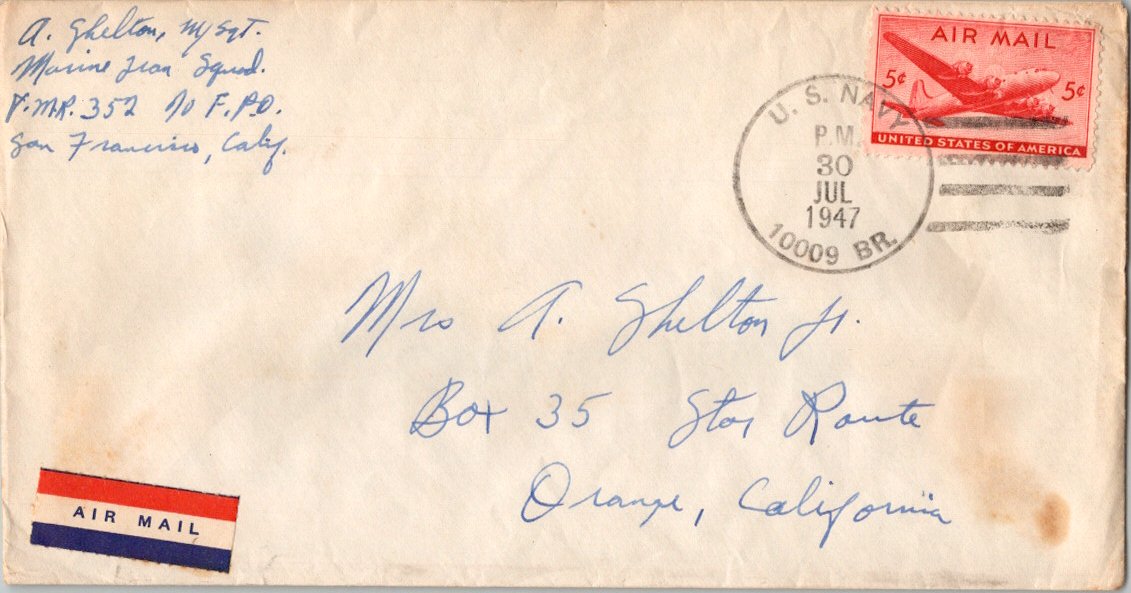 A. Shelton, M/Sgt.
Marine Tran Squad.
V.M.R. 352 % F.P.O.
San Francisco, Calif.
AIR MAIL
5¢ 5¢
UNITED STATES OF AMERICA
U. S. NAVY
P.M.
30
JUL
1947
10009 BR.
Mrs A. Shelton Jr.
Box 35 Star Route
Orange, California
AIR MAIL